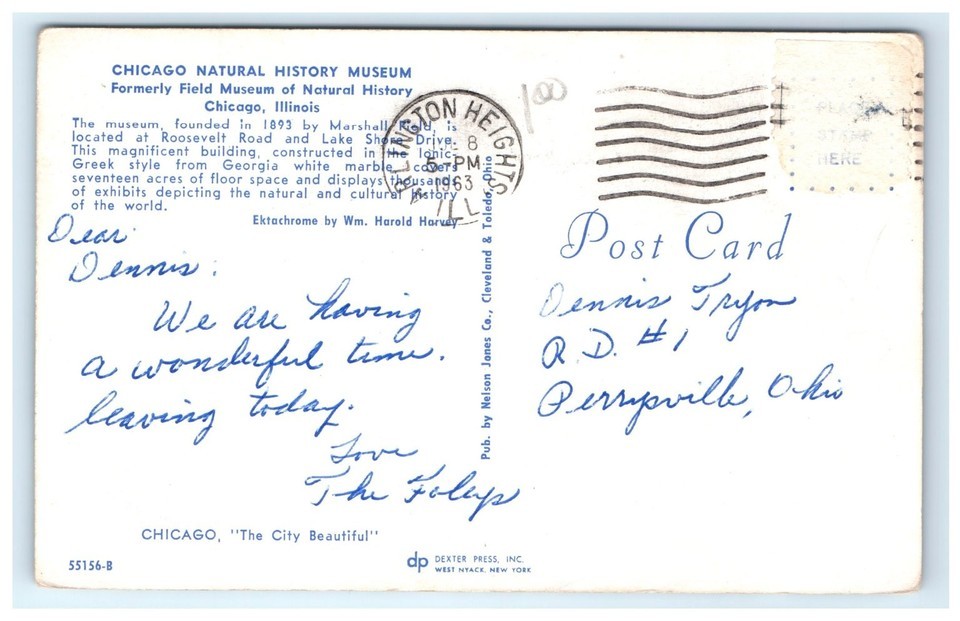 CHICAGO NATURAL HISTORY MUSEUM
Formerly Field Museum of Natural History
Chicago, Illinois
The museum, founded in 1893 by Marshall Field, is
located at Roosevelt Road and Lake Shore Drive.
This magnificent building, constructed in the Ionic
Greek style from Georgia white marble covers
seventeen acres of floor space and displays thousands
of exhibits depicting the natural and cultural history
of the world.
Ektachrome by Wm. Harold Harvey
ARLINGTON HEIGHTS
8
PM
1963
ILL
100
PLACE
STAMP
HERE
Dear
Dennis:
We are having
a wonderful time.
leaving today.
Love
The Foleys
Pub. by Nelson Jones Co., Cleveland & Toledo, Ohio
Post Card
Dennis Tryon
R.D. #1
Perrysville, Ohio
CHICAGO, "The City Beautiful"
55156-B
dp DEXTER PRESS, INC.
WEST NYACK, NEW YORK